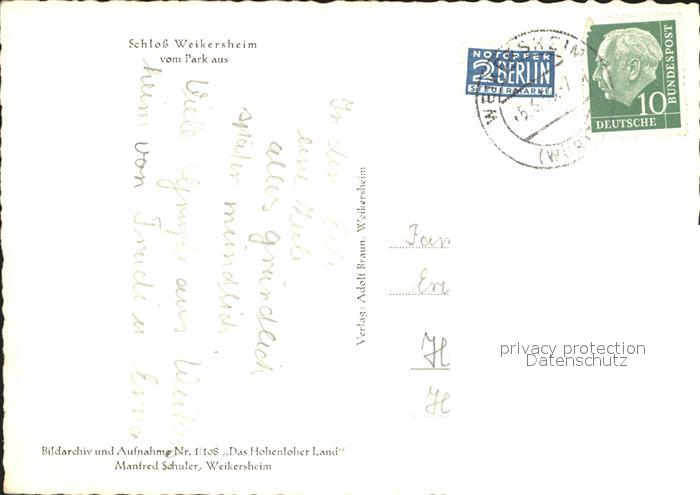 Schloß Weikersheim
vom Park aus
In der Eile
eine Zeile
alles gründlich
später mündlich
Viele Grüße aus Weikers
heim von Trudi u. Erna
Verlag: Adolf Braun, Weikersheim
NOTOPFER
2 BERLIN
STEUERMARKE
WEIKERSHEIM
(WÜRTT
DEUTSCHE
BUNDESPOST
10
Fam
H
H
privacy protection
Datenschutz
Bildarchiv und Aufnahme Nr. 1/108 „Das Hohenloher Land“
Manfred Schuler, Weikersheim